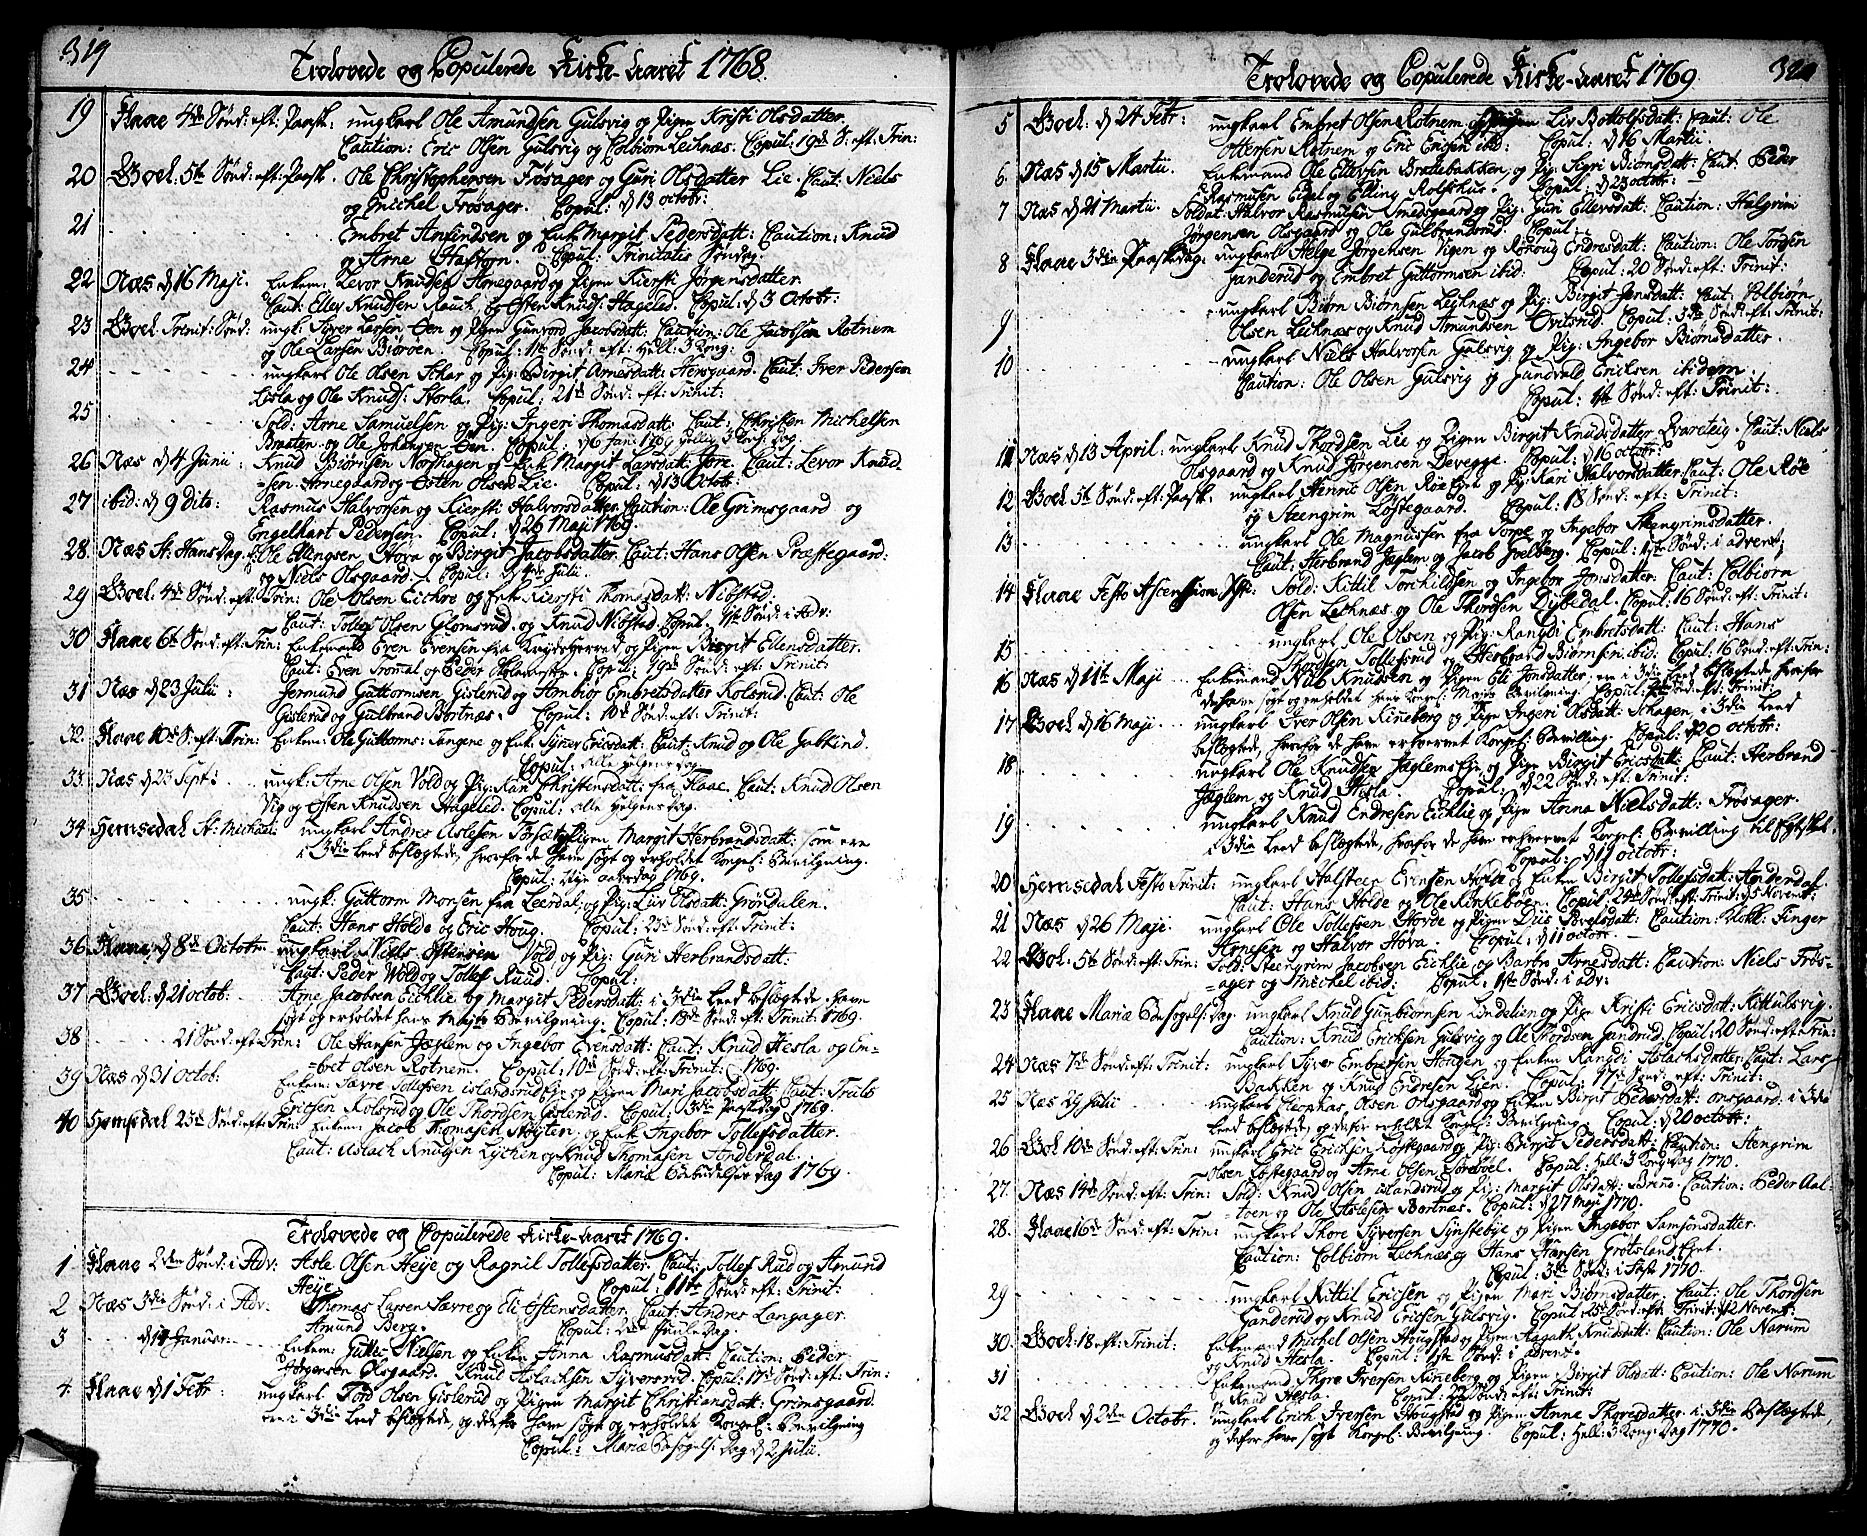 319
Trolovede og Copulerede Kirke-Aaret 1768.
19 Flaae 4de Sønd: eft: Paask: ungkarl Ole Amundsen Gulsvig og Pigen Kristi Olsdatter.
Caution: Eric Olsen Gulsvig og Colbiørn Leknæs. Copul: 19de S: eft: Trin:
20 Goel: 5te Sønd: eft: Paask. Ole Christophersen Frøsager og Guri Olsdatter Lie. Caut: Niels
og Michel Frøsager. Copul: d 13 octobr:
21 Embret Amundsen og Enk: Margit Pedersdatt: Caution: Knud
og Arne Haftorn. Copul: Trinitatis Søndag.
22 Næs d 16 Maji. Enkem: Levor Knudsen Arnegaard og Pigen Kiersti Jørgensdatter
Caut: Ellev Knudsen Rauk, og Østen Knuds: Hageled Copul: d 3 Octobr:
23 Goel: Trinit: Sønd: ungk: Siver Larsen Øen og Pigen Gunvord Jacobsdatt: Caution: Ole Jacobsen Rotnem
og Ole Larsen Biørøen. Copul: 1ste Sønd: eft: Hell: 3 Kong:
24 ungkarl Ole Olsen Skar og Pig: Birgit Arnesdatt: Hersgaard. Caut: Iver Pedersen
Lesla og Ole Knuds: Storla. Copul: 21de Sønd: eft: Trinit:
25 Sold: Arne Samuelsen og Pig: Ingeri Thomasdatt: Caut: Christen Michelsen
Braaten og Ole Johansen Øen. Copul: d 6 Jan: 1769 Hellig 3 Kong: dag.
26 Næs d 4 Junii: Knud Biørnsen Nordhagen og Enk: Margit Larsdatt: Jore. Caut: Levor Knud-
=sen Arnegaard og Østen Olsen Lie. Copul: d 13 Octobr:
27 ibid: d 9 Dito: Rasmus Halvorsen og Kiersti Halvorsdatter Caution: Ole Grimsgaard og
Engelhart Pedersen. Copul: d 26 Maji 1769.
28 Næs St: Hans Dag. Ole Ellingsen Hova og Birgit Jacobsdatter. Caut: Hans Olsen Præstegaard:
og Niels Olsgaard. Copul: d 4de Julii.
29 Goel. 4de Sønd: eft: Trin: Ole Olsen Eickre og Enk: Kiersti Thomasdatt: Nibstad:
Caut: Tollef Olsen Glomsrud og Knud Nibstad. Copul: 1ste Sønd: i Adv:
30 Flaae 6te Sønd: eft: Trin: Enkemand Even Evensen fra Krydsherred og Pigen Birgit Ellensdatter.
Caut: Even Tromal og Peder Copul: 19de Sønd: eft: Trinit:
31 Næs d 23 Julii: Jermund Guttormsen Gislerud og Ambior Embretsdatter Kolsrud. Caut: Ole
Gislerud og Gulbrand Bortnæs. Copul: 10de Sønd: eft: Trinit:
32. Flaae 10de S: eft: Trin: Enkem: Ole Guttorms: Tangene og Enk: Synev Ericsdatt: Caut: Knud og Ole Jaltind.
Copul: alle helgens dag.
33. Næs d 23 Sept: ungk: Arne Olsen Vold og Pig: Kari Christensdatt: fra Flaae. Caut: Knud Olsen
Vig og Østen Knudsen Hageled. Copul: alle Helgens dag.
34 Hemsedal St: Michael: ungkarl Andres Aslesen og Pigen Margit Herbrandsdatt: som ere
i 3die Leed beslægtede, hvorfor de have søgt og erholdet Kongel: Bevilgning.
Copul: Nye aarsdag 1769.
35 ungk: Guttorm Monsen fra Leerdal og Pig: Liv Olsdatt: Grøndalen.
Caut: Hans Holde og Eric Houg. Copul: 23de Sønd: eft: Trinit:
36 Flaae, d 8de Octobr. ungkarl Niels Østensen Vold og Pig: Guri Herbrandsdatt:
Caut: Peder Wold og Tollef Ruud. Copul:
37 Goel: d 21 octob: Arne Jacobsen Eicklie og Margit Pedersdatt: i 3die Leed beslægtede, have
søgt og erholdet hans Majts Bevilgning. Copul: 18de Sønd: eft: Trinit: 1769.
38 21 Sønd: eft: Trin: Ole Hansen Jæglem og Ingebor Evensdatt: Caut: Knud Hesla og Em=
=bret Olsen Rotnem. Copul: 10de Sønd: eft: Trinit: 1769.
39 Næs d 31 Octob: Enkem: Sævre Tollefsen islandsrud Eje og Pigen Mari Jacobsdatt: Caut: Truls
Ericsen Kolsrud og Ole Thordsen Gislerud. Copul: 3die Paaskedag 1769.
40 Hemsedal 23de Sønd: eft: Trin: Enkem: Jacob Thomasen Nøyten og Enk: Ingebor Tollefsdatter.
Caut: Aslach Knudsen Lychen og Knud Thomasen Tønderdal.
Copul: Mariæ Bebudelses Dag 1769.
Trolovede og Copulerede Kirke-Aaret 1769.
1 Flaae 2den Sønd: i Adv: Asle Olsen Heye og Ragnil Tollefsdatter. Caut: Tollef Rud og Amund
Heye. Copul: 11te Sønd: eft: Trinit:
2 Næs 3die Sønd: i Adv. Thomas Larsen Sævre og Eli Østensdatter. Caut: Andres Langager.
Amund Berg. Copul: 2den Juuledag.
3 d 14 Januar: Enkem: Gutter Nielsen og Enken Anna Rasmusdatt: Caution: Peder
Jørgensen Olsgaard. Knud Aslachsen Syversrud. Copul: 17de Sønd: eft: Trin:
4. Flaae d 1 Febr: ungkarl Tord Olsen Gislerud og Pigen Margit Christiansdatt: Grimsgaard
ere i 3die Leed beslægtede, og derfor have søgt og erholdet Kongel: Bevilgning
Copul: Mariæ Besøgels: Dag d 2 Julii.
320
Trolovede og Copulerede Kirke-aaret 1769
5 Goel: d 24 Febr: ungkarl Embret Olsen Rotnem og Pigen Liv Bottolfsdatt: Caut: Ole
Ottersen Rotnem og Eric Ericsen ibid: Copul: d 16 Martii
6. Næs d 15 Martii. Enkemand Ole Ellevsen Bratebakken, og Pig: Sigri Biørnsdatt: Caut: Peder
Rasmusen Eidal og Elling Rolfshus. Copul: d 23 octobr:
7 Næs d 21 Martii. Soldat: Halvor Rasmusen Smedsgaard og Pig: Guri Ellevsdatt: Caution: Halgrim
Jørgensen Olsgaard og Ole Gulbrandsrud. Copul:
8 Flaae 3die Paaskedag: ungkarl Helge Jørgensen Vigen og Rønnoug Endresdatt: Caution: Ole Tordsen
Ganderud og Embret Guttormsen ibid: Copul: 20 Sønd: eft: Trinit:
9 ungkarl Biørn Biørnsen Leknæs og Pig: Birgit Jonsdatt: Caut: Colbiørn
Olsen Lecknæs og Knud Amundsen Copul: 3die Sønd: eft: Trinit:
10 ungkarl Niels Halvorsen Gulsvig og Pig: Ingebor Biørnsdatter.
Caution: Ole Olsen Gulsvig og Gundvald Ericksen ibidem.
Copul: 1ste Sønd: eft: Trinit:
11 Næs d 13 April. ungkarl Knud Thordsen Lie og Pigen Birgit Knudsdatter Qvarteig. Caut: Niels
Olsgaard og Knud Jørgensen Devegge. Copul: d 16 octobr:
12 Goel 5te Sønd: eft: Paask. ungkarl Henric Olsen Røe Eye og Pig: Kari Halvorsdatter Caut: Ole Røe
og Steengrim Løstegaard. Copul: 18 Sønd: eft: Trinit:
13 ungkarl Ole Magnussen fra Torpe og Ingebor Steengrimsdatter.
Caut: Herbrand Jæglem og Jacob Golberg. Copul: 1ste Sønd: i advent;
14 Flaae Festo Ascension: Chr: Sold: Kittil Torchildsen og Ingebor Jonsdatter Caut: Colbiørn
Olsen Lecknæs og Ole Thordsen Dybedal. Copul: 16 Sønd: eft: Trinit:
15 ungkarl Ole Olsen og Pig: Rangdi Embretsdatt: Caut: Hans
Thordsen Tollefsrud og Herbrand Biørnsen ibid: Copul: 16 Sønd: eft: Trin:
16 Næs d 11te Maji Enkemand Nils Knudsen og Pigen Eli Jonsdatter; ere i 3die leed beslegtede hvorfor
de have søgt og erholdet hans Kongel: Majts Bevilgning. Copul: Sønd: eft: Trinit:
17 Goel d 16 Maji ungkarl Iver Olsen Kineberg og Pigen Ingeri Olsdatt: Skagen, i 3die Leed
beslægtede, hvorfor de have erhvervet Kongel: Bevilling. Copul: d 20 octobr:
18 ungkarl Ole Knudsen Jæglems Eje, og Pigen Birgit Ericsdatt: Caut: Herbrand
Jæglem og Knud Hesla. Copul: d 22 Sønd: eft: Trinit:
19 ungkarl Knud Endresen Eicklie og Pigen Anna Nielsdatt: Frøsager.
i 3die Leed beslægtede, hvorfor de have erhvervet Kongel: Bevilling til Egteskab.
Copul: d 19 octobr:
20 Hemsedal Festo Trinit: ungkarl Halsteen Evensen Holde og Enken Birgit Tollefsdatt: Anderdal
Caut: Hans Holde og Ole Kirkeboen. Copul: 24de Sønd: eft: Trinit: d 5 Novembr:
21 Næs d 26 Maji. ungkarl Ole Tollefsen Hovde og Pigen Dus Povelsdatt: Caution: Finger
Arnesen og Halvor Hova. Copul: d 11 octobr.
22 Goel. 5te Sønd: eft: Trin: Sold: Steengrim Jacobsen Eicklie og Barbr Arnesdatt: Caution: Niels Frøs-
=ager og Michel ibid: Copul: 1ste Sønd: i adv:
23 Flaae Mariæ Besøgels: Dag. ungkarl Knud Gunbiørnsen Lindelien og Pigen Kristi Ericsdat: Kittulsvig.
Caution: Knud Ericksen Gulsvig og Ole Thordsen Gandrud. Copul: 20 Sønd: eft: Trin:
24 Næs 7de Sønd: eft: Trinit: ungkarl Syver Embretsen Hougen og Enken Rangdi Aslachsdatter Caut: Lars
Bakken og Knud Endresen Lien. Copul: 17de Sønd: eft: Trinit:
25 Næs 29 Julii ungkarl Cleophas Olsen Onsgaard og Enken Birgit Pedersdatt: Onsgaard. i 3die
Leed beslægtede, og derfor erholdet Kongel: Bevilgning. Copul: d 20 octobr:
26 Goel 10de Sønd: eft: Trin: ungkarl Eric Ericksen Løstegaard og Pig: Birgit Pedersdatt: Caution: Stengrim
Olsen Løstegaard og Arne Olsen Copul: Hell: 3 Kong: dag 1770.
27. Næs 14de Sønd: eft: Trin: Sold: Knud Olsen islandsrud og Pig: Margit Olsdatt: Breno. Caution: Peder Aal
=toen og Ole Aslesen Bortnæs. Copul: d 27 Maji 1770.
28. Flaae 16de Sønd: eft: Trin: ungkarl Thore Syversen Synstebye og Pigen Ingebor Samsonsdatter.
Caution: Colbiørn Lecknæs og Hans Hansen Grotsland Eyet.
Copul: 3de Sønd: i Faste 1770.
29 ungkarl Kittil Ericsen og Pigen Mari Biørnsdatter. Caut: Ole Thordsen
Ganderud og Knud Ericsen Gulsvig. Copul: 25de Sønd: eft: Trinit: d 12 Novembr:
30. Goel: 18 eft: Trinit: Enkemand Michel Olsen Hougstad og Pigen Aagath Knudsdatt: Caution: Ole Narum
og Knud Hesla. Copul: 1ste Sønd: i advent.
31 Enkemand Thore Iversen Kineberg og Pigen Birgit Olsdatt: Caution: Ole Narum
og Knud Hesla. Copul: 22 Sønd: eft: Trinit:
32 Goel d 2den Octobr. ungkarl Erich Iversen Hougstad og Pigen Anne Thoresdatter. i 3die beslægtede,
og derfor have søgt Kongel: Bevilgning. Copul: Hell: 3 Kong: Dag 1770.